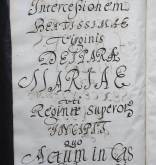 Intercepionem
BEATISSIMÆ
Virginis
DEIPARÆ
MARIÆ
uti
Reginæ superoꝝ
INCIPIT
quo
Metum in Cas